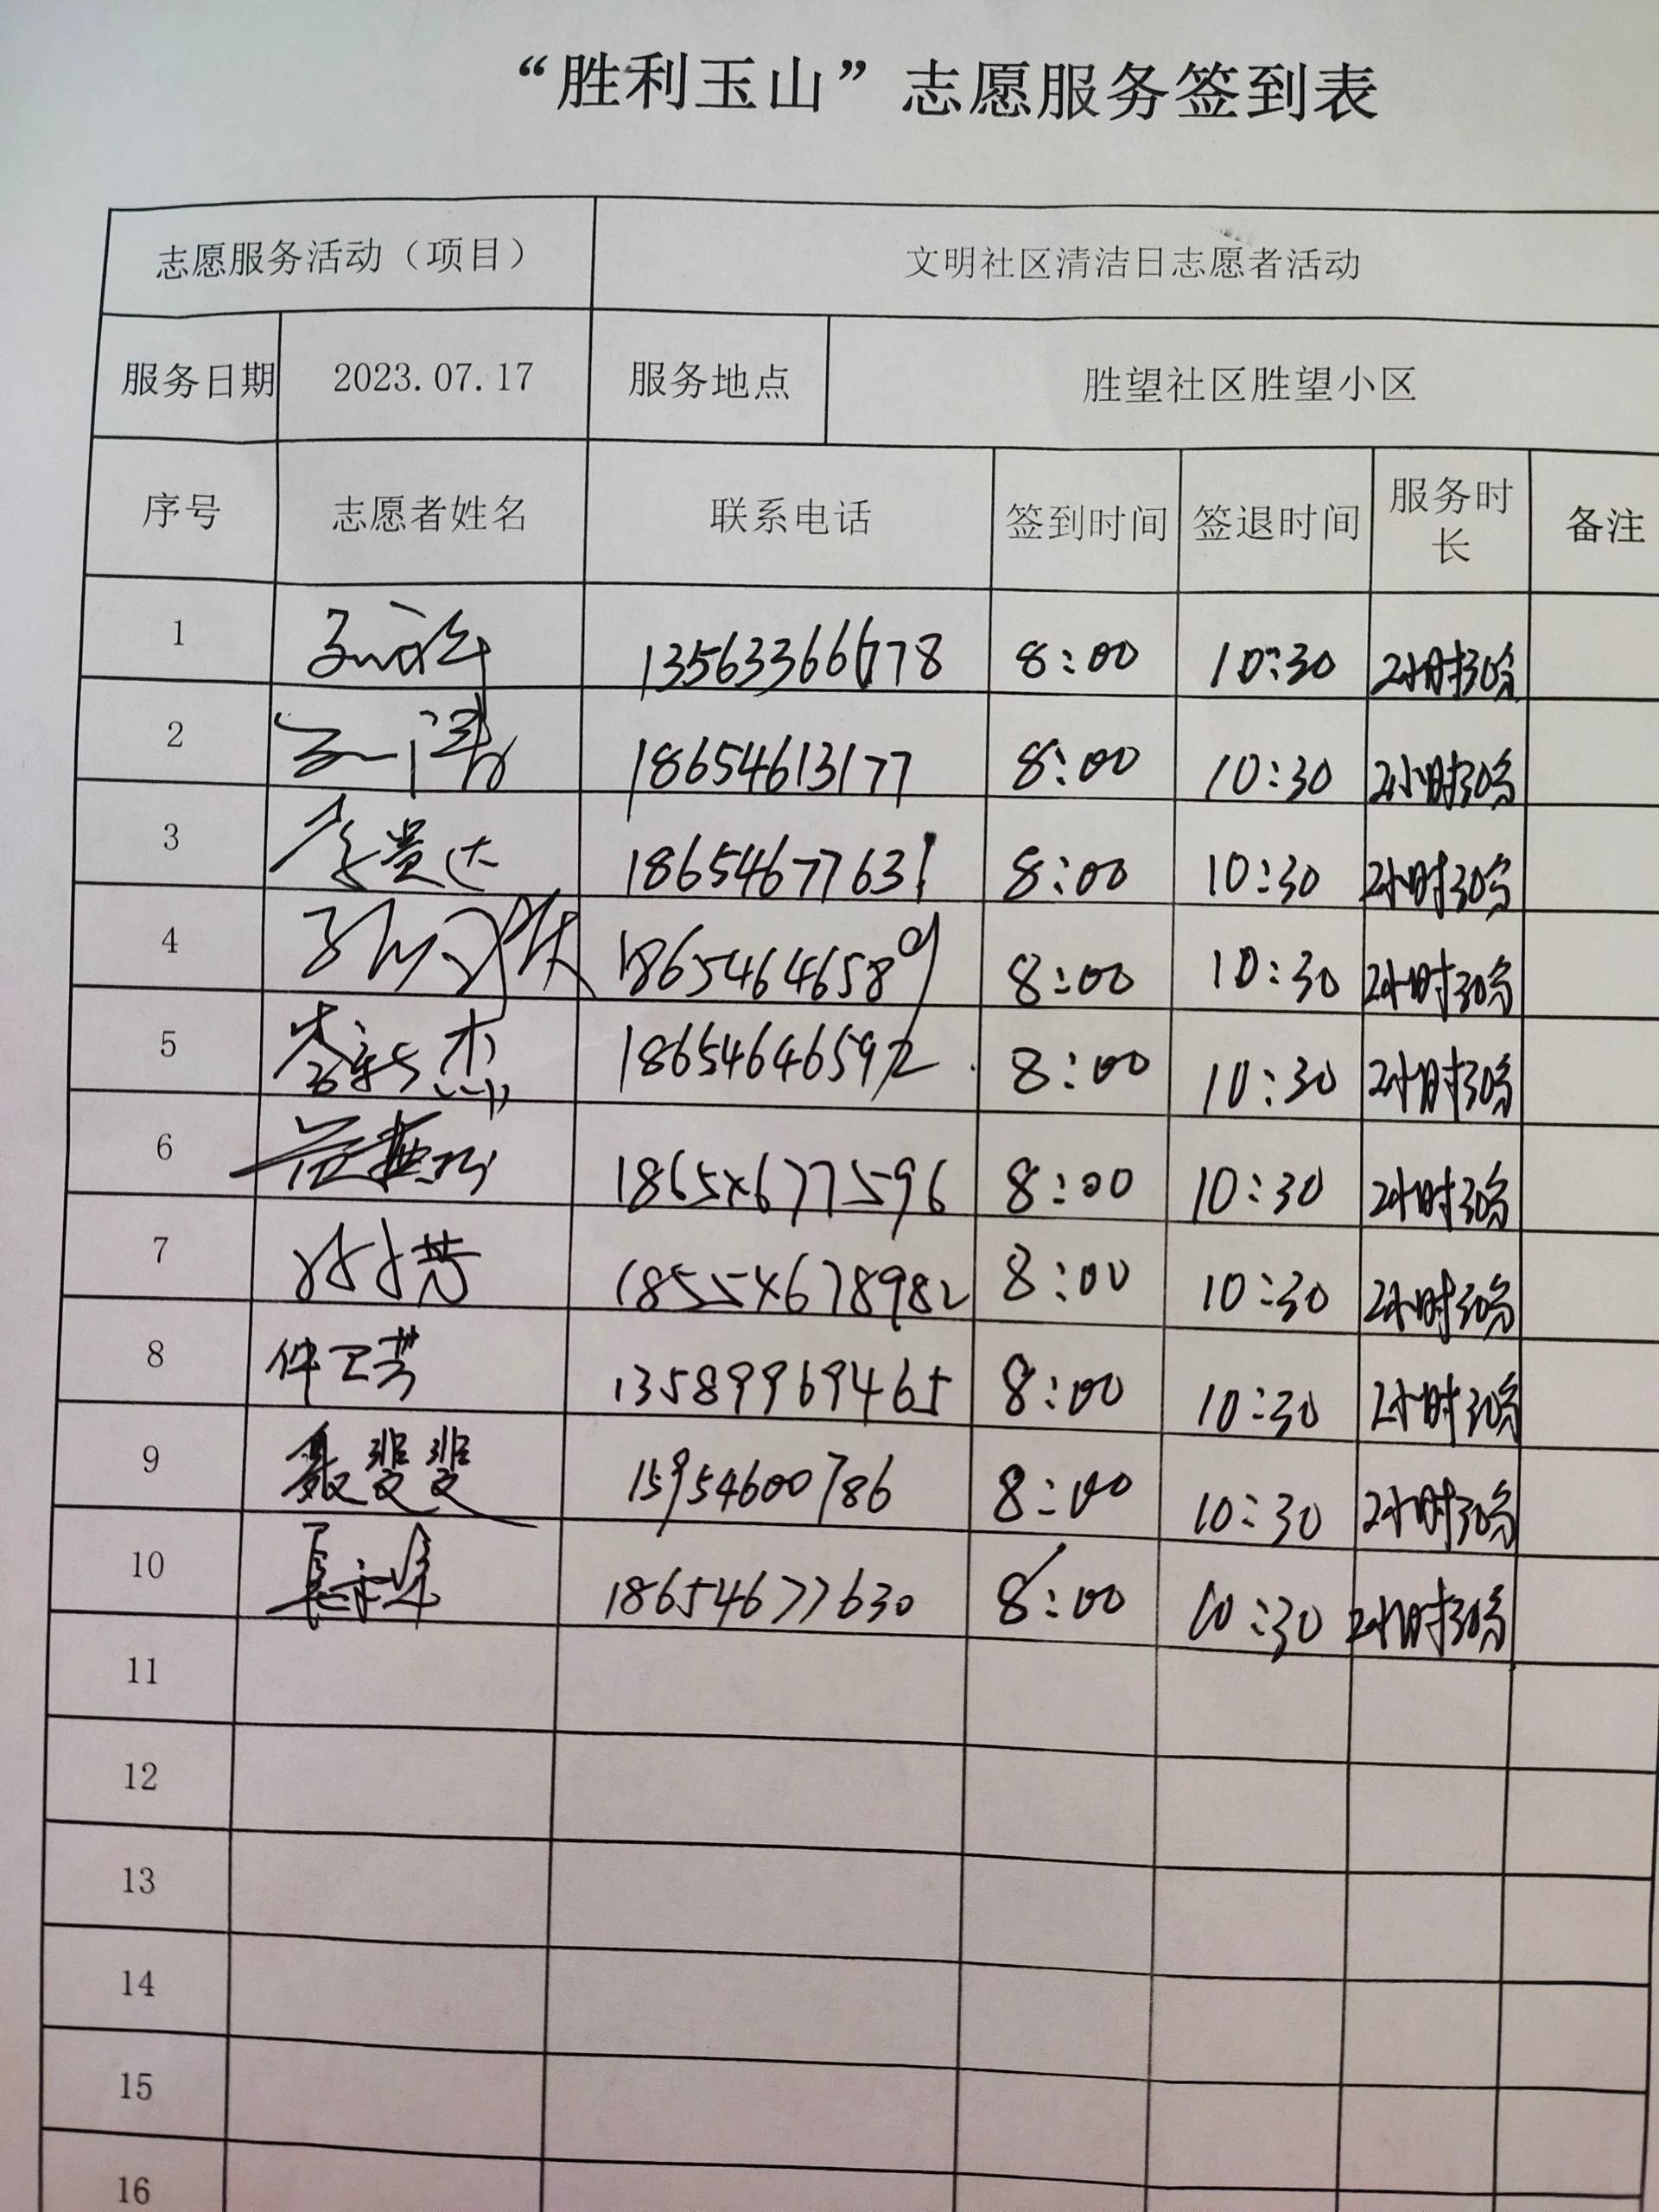 “胜利玉山”志愿服务签到表
志愿服务活动（项目） 文明社区清洁日志愿者活动
服务日期 2023.07.17 服务地点 胜望社区胜望小区
序号 志愿者姓名 联系电话 签到时间 签退时间 服务时长 备注
1 13563366678 8:00 10:30 2小时30分
2 18654613177 8:00 10:30 2小时30分
3 李贵达 18654677631 8:00 10:30 2小时30分
4 18654646589 8:00 10:30 2小时30分
5 李新杰 18654646592 8:00 10:30 2小时30分
6 18654677596 8:00 10:30 2小时30分
7 18554678982 8:00 10:30 2小时30分
8 仲卫芳 13589969465 8:00 10:30 2小时30分
9 聂斐斐 15954600786 8:00 10:30 2小时30分
10 18654677630 8:00 10:30 2小时30分
11
12
13
14
15
16